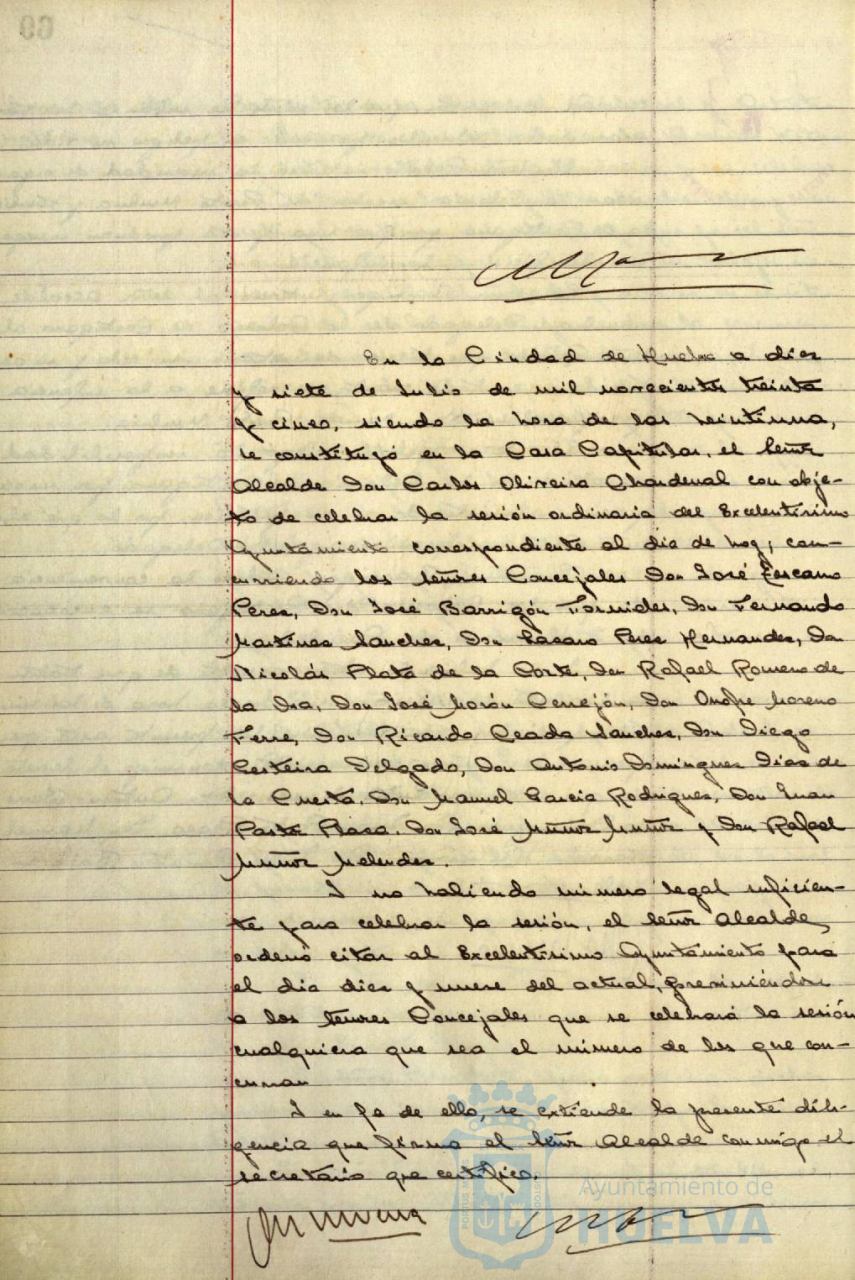 En la Ciudad de Huelva a diez
y siete de Julio de mil novecientos treinta
y cinco, siendo la hora de las veintiuna,
se constituyó en la Casa Capitular, el Señor
Alcalde Don Carlos Oliveira Chardenal con obje-
to de celebrar la sesión ordinaria del Excelentísimo
Ayuntamiento correspondiente al día de hoy, con-
curriendo los señores Concejales Don José Escamo
Perez, Don José Barrigón Fornieles, Don Fernando
Martinez Sanchez, Don Lázaro Perez Hernandez, Don
Nicolás Plata de la Corte, Don Rafael Romero de
la Osa, Don José Morón Cerrejón, Don Onofre Moreno
Ferre, Don Ricardo Ceada Sanchez, Don Diego
Certeira Delgado, Don Antonio Dominguez Diaz de
la Cuesta, Don Manuel Garcia Rodriguez, Don Juan
Plaza, Don José Muñoz Muñoz y Don Rafael
Muñoz Melendez.
I no habiendo número legal suficien-
te para celebrar la sesión, el Señor Alcalde,
ordenó citar al Excelentísimo Ayuntamiento para
el día diez y nueve del actual, previniéndose
a los señores Concejales que se celebrará la sesión
cualquiera que sea el número de los que con-
curran
I en fe de ello, se extiende la presente dili-
gencia que firma el Señor Alcalde conmigo el
secretario que certifico.
Ayuntamiento de
HUELVA